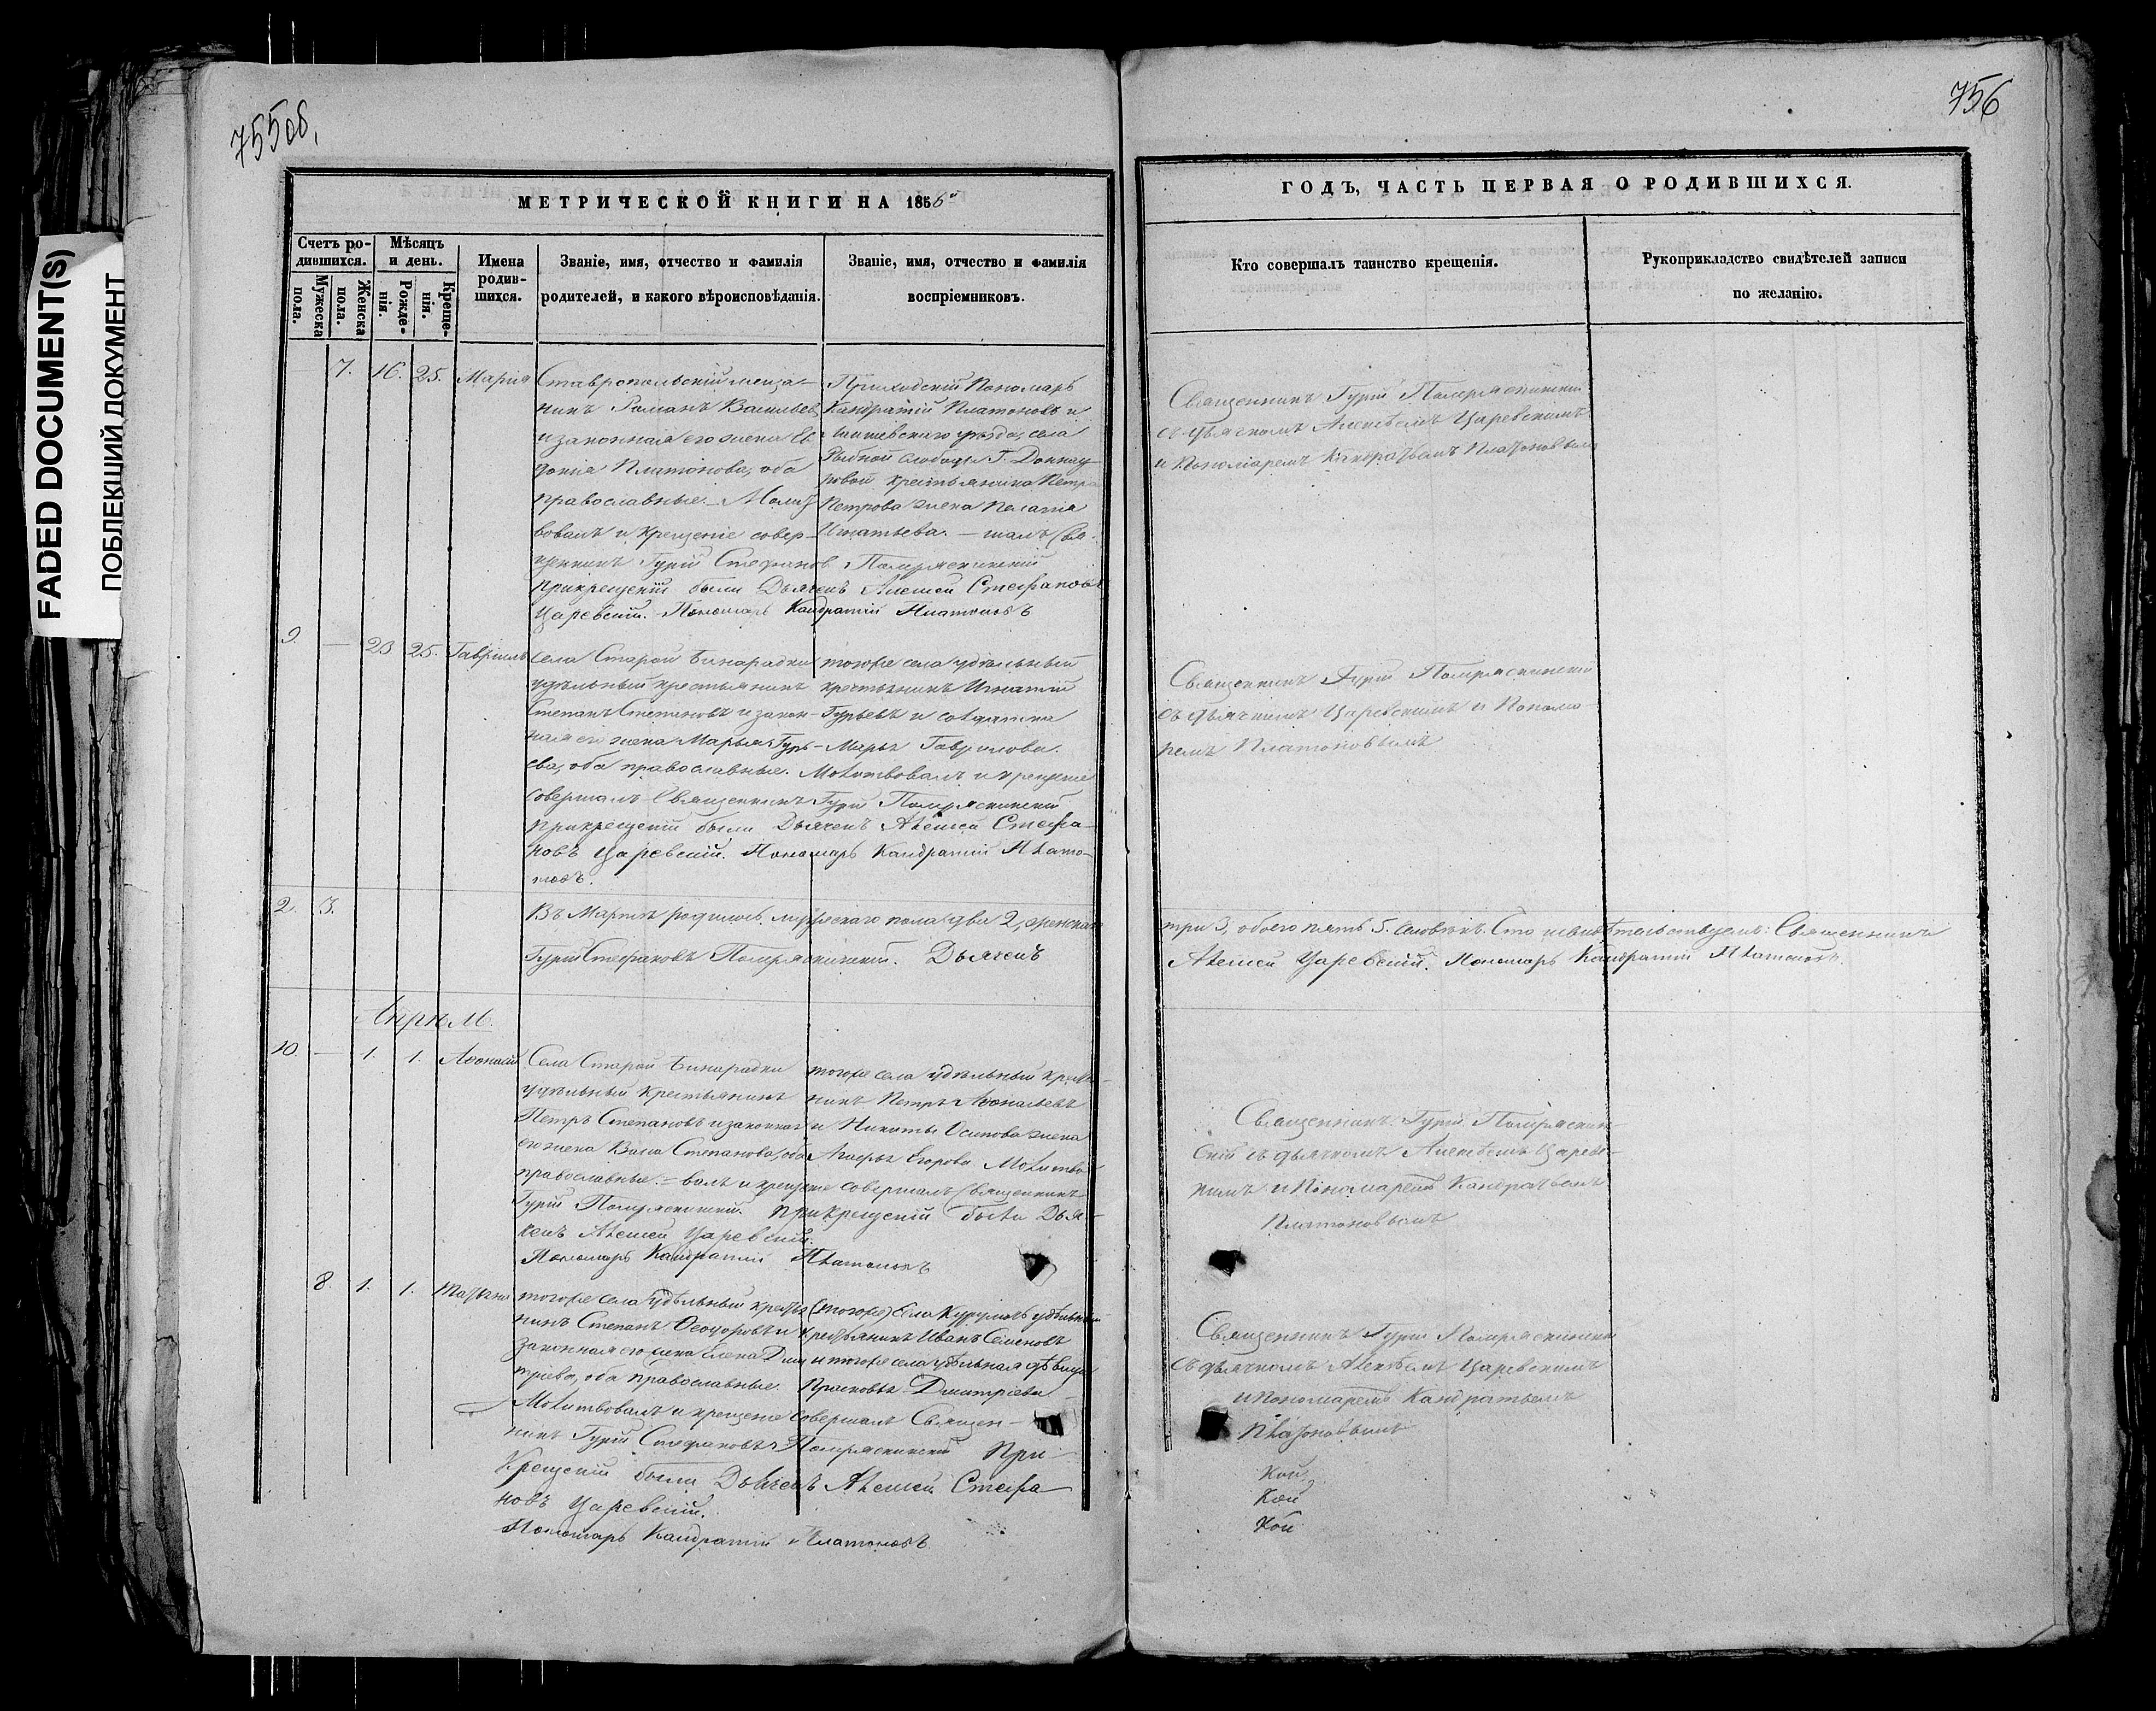 755об,
756
FADED DOCUMENT(S)
ПОБЛЕКШИЙ ДОКУМЕНТ
МЕТРИЧЕСКОЙ КНИГИ НА 1856й
ГОДЪ, ЧАСТЬ ПЕРВАЯ О РОДИВШИХСЯ.
Счетъ ро-
дившихся.
Мужеска
пола.
Женска
пола.
Мѣсяцъ
и день.
Рожде-
нія.
Креще-
нія.
Имена
родив-
шихся.
Званіе, имя, отчество и фамилія
родителей, и какого вѣроисповѣданія.
Званіе, имя, отчество и фамилія
воспріемниковъ.
Кто совершалъ таинство крещенія.
Рукоприкладство свидѣтелей записи
по желанію.
7. 16. 25. Марія
Ставропольскій мѣща-
нинъ Романъ Васильев
и законная его жена Ев
докія Платонова, оба
православные. Молит
вовалъ и крещеніе совер-
шалъ Свя-
щенникъ Гурій Стефанов
прикрещеніи были Дьячекъ Алексей Стефановъ
Царевскій. Пономарь Кандратій Платоновъ
Приходскій Пономарь
Кандратій Платоновъ и
уѣзда, села
Рыбной слободы Г.
крестьянина Петра
Петрова жена Пелагія
Игнатьева.
Священникъ Гурій
съ дьячкомъ Алексѣемъ Царевскимъ
и Пономаремъ Кандратьемъ Платоновымъ
9. — 23 25. Гавріилъ
Села Старой Бинарадки
удѣльный крестьянинъ
Степанъ Степановъ и закон-
ная его жена Марья Гурь-
ева, оба православные. Молитвовалъ и крещеніе
совершалъ Священникъ Гурій
прикрещеніи были Дьячекъ Алексей Стефа-
новъ Царевскій. Пономарь Кандратій Плато-
новъ.
тогоже села удѣльный
крестьянинъ Игнатій
Гурьевъ и солдатка
Марья Гаврилова.
Священникъ Гурій
съ дьячкомъ Царевскимъ и Понома-
ремъ Платоновымъ
2. 3.
Въ Мартѣ родилось мужескаго пола два 2, женскаго
три 3, обоего пять 5. человѣкъ. Сто свидѣтельствуемъ: Священникъ
Гурій Стефановъ Дьячекъ
Алексей Царевскій. Пономарь Кандратій Платоновъ.
Апрѣль.
10. — 1. 1. Афонасій
Села Старой Бинарадки
удѣльный Крестьянинъ
Петръ Степановъ и законная
его жена Васа Степанова, оба
православные. — валъ и крещеніе совершалъ Священникъ
Гурій прикрещеніи были Дья-
чекъ Алексей Царевскій.
Пономарь Кандратій Платоновъ
тогоже села удѣльный крестья-
нинъ Петръ Афонасьевъ
и Никиты Осипова жена
Агафья Егорова Молитво-
Священникъ Гурій
съ дьячкомъ Алексѣемъ Царев-
скимъ и Пономаремъ Кандратьемъ
Платоновымъ
8. 1. 1. Татьяна
тогоже села удѣльный крестья
нинъ Степанъ Феодоровъ и
законная его жена Елена Дми
тріева, оба Православные.
Молитвовалъ и крещеніе совершалъ Священ-
никъ Гурій Стефановъ При
Крещеніи были Дьячекъ Алексей Стефа
новъ Царевскій.
Пономарь Кандратій Платоновъ.
(тогоже) села Курумочъ удѣльный
крестьянинъ Иванъ Семеновъ
и тогоже села удѣльная дѣвица
Прасковья Дмитріева
Священникъ Гурій
съ дьячкомъ Алексѣемъ Царевскимъ
и пономаремъ Кандратьемъ
Платоновымъ
Кой
Кой
Кой